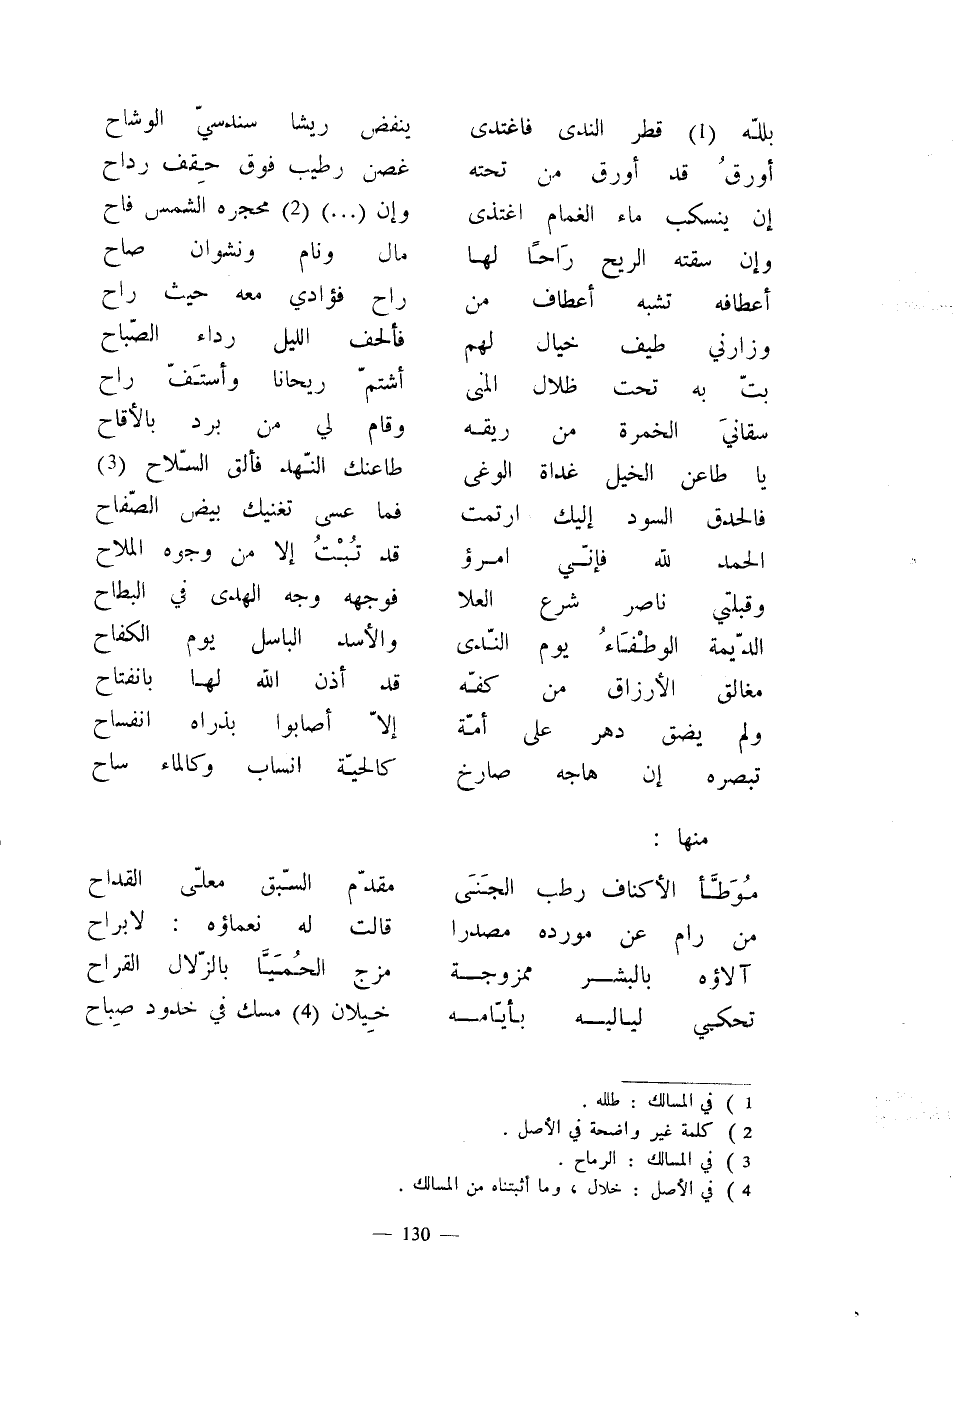 بللّه (1) قطر الندى فاغتدى ينفض ريشا سندسيّ الوشاح
أورقُ قد أورق من تحته غصن رطيب فوق حِقف رداح
إن ينسكب ماء الغمام اغتذى وإن (...) (2) محجره الشمس فاح
وإن سقته الريح رَاحًا لها مال ونام ونشوان صاح
أعطافه تشبه أعطاف من راح فؤادي معه حيث راح
وزارني طيف خيال لهم فألحف الليل رداء الصّباح
بتّ به تحت ظلال المنى أشتمّ ريحانا وأستَفّ راح
سقانيَ الخمرة من ريقه وقام لي من برد بالأقاح
يا طاعن الخيل غداة الوغى طاعنك النّهد فألق السّلاح (3)
فالحدق السود إليك ارتمت فما عسى تغنيك بيض الصّفاح
الحمد لله فإنّي امرؤ قد تُبْتُ إلا من وجوه الملاح
وقبلتي ناصر شرع العلا فوجهه وجه الهدى في البطاح
الدّيمة الوطْفَاءُ يوم النّدى والأسد الباسل يوم الكفاح
مغالق الأرزاق من كفّه قد أذن الله لها بانفتاح
ولم يضق دهر على أمّة إلاّ أصابوا بذراه انفساح
تبصره إن هاجه صارخ كالحيّة انساب وكالماء ساح
منها :
مُوَطَّأ الأكناف رطب الجَنَى مقدّم السّبق معلّى القداح
من رام عن مورده مصدرا قالت له نعماؤه : لابراح
آلاؤه بالبشر ممزوجة مزج الحُمَيَّا بالزّلال القراح
تحكي لياليه بأيّامه خِيلان (4) مسك في خدود صباح
1 ) في المسالك : طلله .
2 ) كلمة غير واضحة في الأصل .
3 ) في المسالك : الرماح .
4 ) في الأصل : خلال ، وما أثبتناه من المسالك .
— 130 —